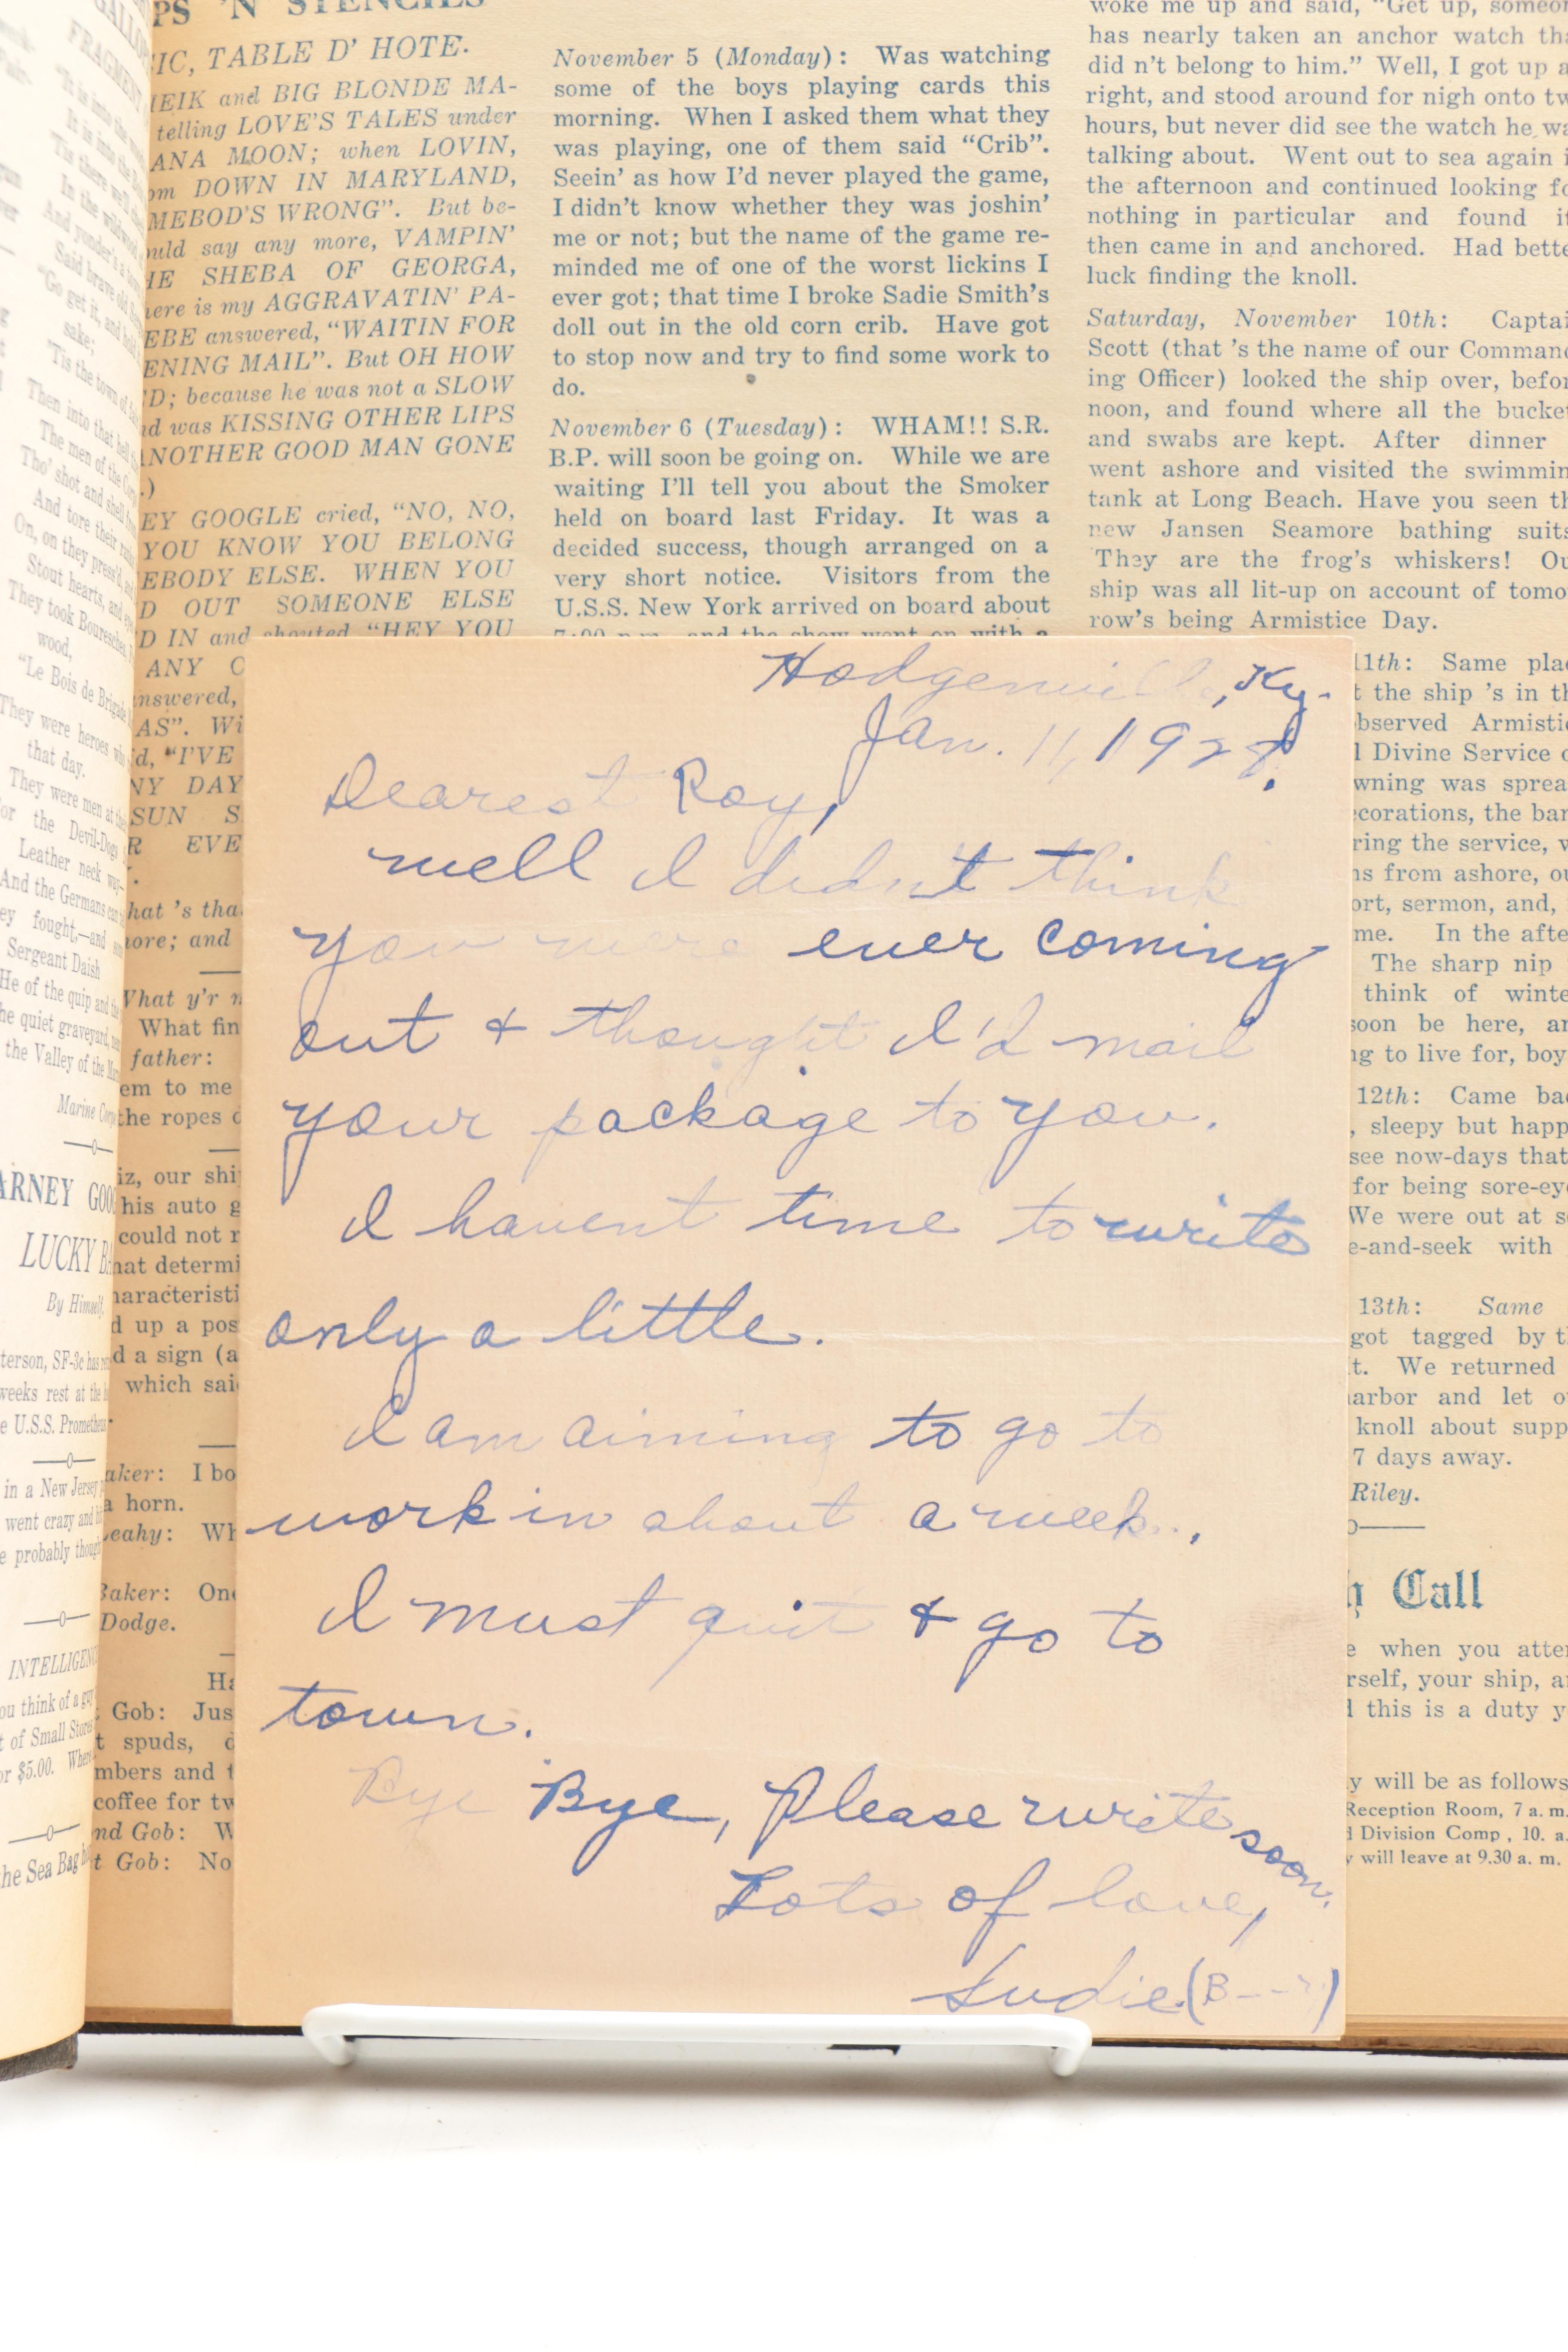 PS 'N STENCIES
IC, TABLE D' HOTE.
EIK and BIG BLONDE MA-
telling LOVE'S TALES under
ANA MOON; when LOVIN,
om DOWN IN MARYLAND,
MEBOD'S WRONG". But be-
uld say any more, VAMPIN'
HE SHEBA OF GEORGA,
here is my AGGRAVATIN' PA-
EBE answered, "WAITIN FOR
ENING MAIL". But OH HOW
D; because he was not a SLOW
nd was KISSING OTHER LIPS
NOTHER GOOD MAN GONE
.)
EY GOOGLE cried, "NO, NO,
YOU KNOW YOU BELONG
EBODY ELSE. WHEN YOU
D OUT SOMEONE ELSE
D IN and shouted "HEY YOU
ANY C
nswered,
AS". Wi
d, "I'VE
NY DAY
SUN S
R EVE
hat 's tha
ore; and
What y'r n
What fin
father:
em to me
the ropes
iz, our shi
his auto g
could not r
hat determi
haracteristi
d up a pos
d a sign (a
which sai
aker: I bo
a horn.
eahy: Wh
Baker: One
Dodge.
Ha
Gob: Jus
t spuds,
mbers and t
coffee for tw
nd Gob: W
t Gob: No
November 5 (Monday): Was watching
some of the boys playing cards this
morning. When I asked them what they
was playing, one of them said "Crib".
Seein' as how I'd never played the game,
I didn't know whether they was joshin'
me or not; but the name of the game re-
minded me of one of the worst lickins I
ever got; that time I broke Sadie Smith's
doll out in the old corn crib. Have got
to stop now and try to find some work to
do.
November 6 (Tuesday): WHAM!! S.R.
B.P. will soon be going on. While we are
waiting I'll tell you about the Smoker
held on board last Friday. It was a
decided success, though arranged on a
very short notice. Visitors from the
U.S.S. New York arrived on board about
7:00 p.m. and the show went on with a
woke me up and said, "Get up, someon
has nearly taken an anchor watch tha
did n't belong to him." Well, I got up a
right, and stood around for nigh onto tw
hours, but never did see the watch he wa
talking about. Went out to sea again i
the afternoon and continued looking fo
nothing in particular and found it
then came in and anchored. Had bette
luck finding the knoll.
Saturday, November 10th: Captai
Scott (that 's the name of our Command
ing Officer) looked the ship over, befor
noon, and found where all the bucket
and swabs are kept. After dinner
went ashore and visited the swimmin
tank at Long Beach. Have you seen th
new Jansen Seamore bathing suits
They are the frog's whiskers! Ou
ship was all lit-up on account of tomo
row's being Armistice Day.
11th: Same plac
t the ship 's in th
bserved Armistic
l Divine Service o
wning was sprea
corations, the ban
ring the service, v
ns from ashore, ou
ort, sermon, and,
me. In the afte
The sharp nip
think of winte
soon be here, an
ng to live for, boy
12th: Came bac
, sleepy but happ
see now-days that
for being sore-eye
We were out at s
e-and-seek with
13th: Same
got tagged by t
t. We returned
arbor and let o
knoll about supp
7 days away.
Riley.
Call
e when you atten
rself, your ship, a
d this is a duty y
y will be as follows
Reception Room, 7 a. m.
d Division Comp , 10. a.
y will leave at 9.30 a. m.
FRAGMENT
"Le Bois de Brigade
They were heroes who
that day.
They were men at the
or the Devil-Dogs
Leather neck way—
And the Germans
ey fought,—and
Sergeant Daish
He of the quip and the
he quiet graveyard,
the Valley of the
Marine Corps
ARNEY GOO
LUCKY B
By Himself.
terson, SF-3c has
weeks rest at the
e U.S.S. Prometheus
in a New Jersey
went crazy and
e probably though
INTELLIGENC
ou think of a guy
t of Small Stores
or $5.00. Where
the Sea Bag
Hodgenville, Ky.
Jan. 11, 1927.
Dearest Roy,
well I didn't think
you were ever coming
out & thought I'd mail
your package to you.
I havent time to write
only a little.
I am aiming to go to
work in about a week.
I must quit & go to
town.
Bye Bye, Please write soon.
Lots of love,
Sudie (B---r)